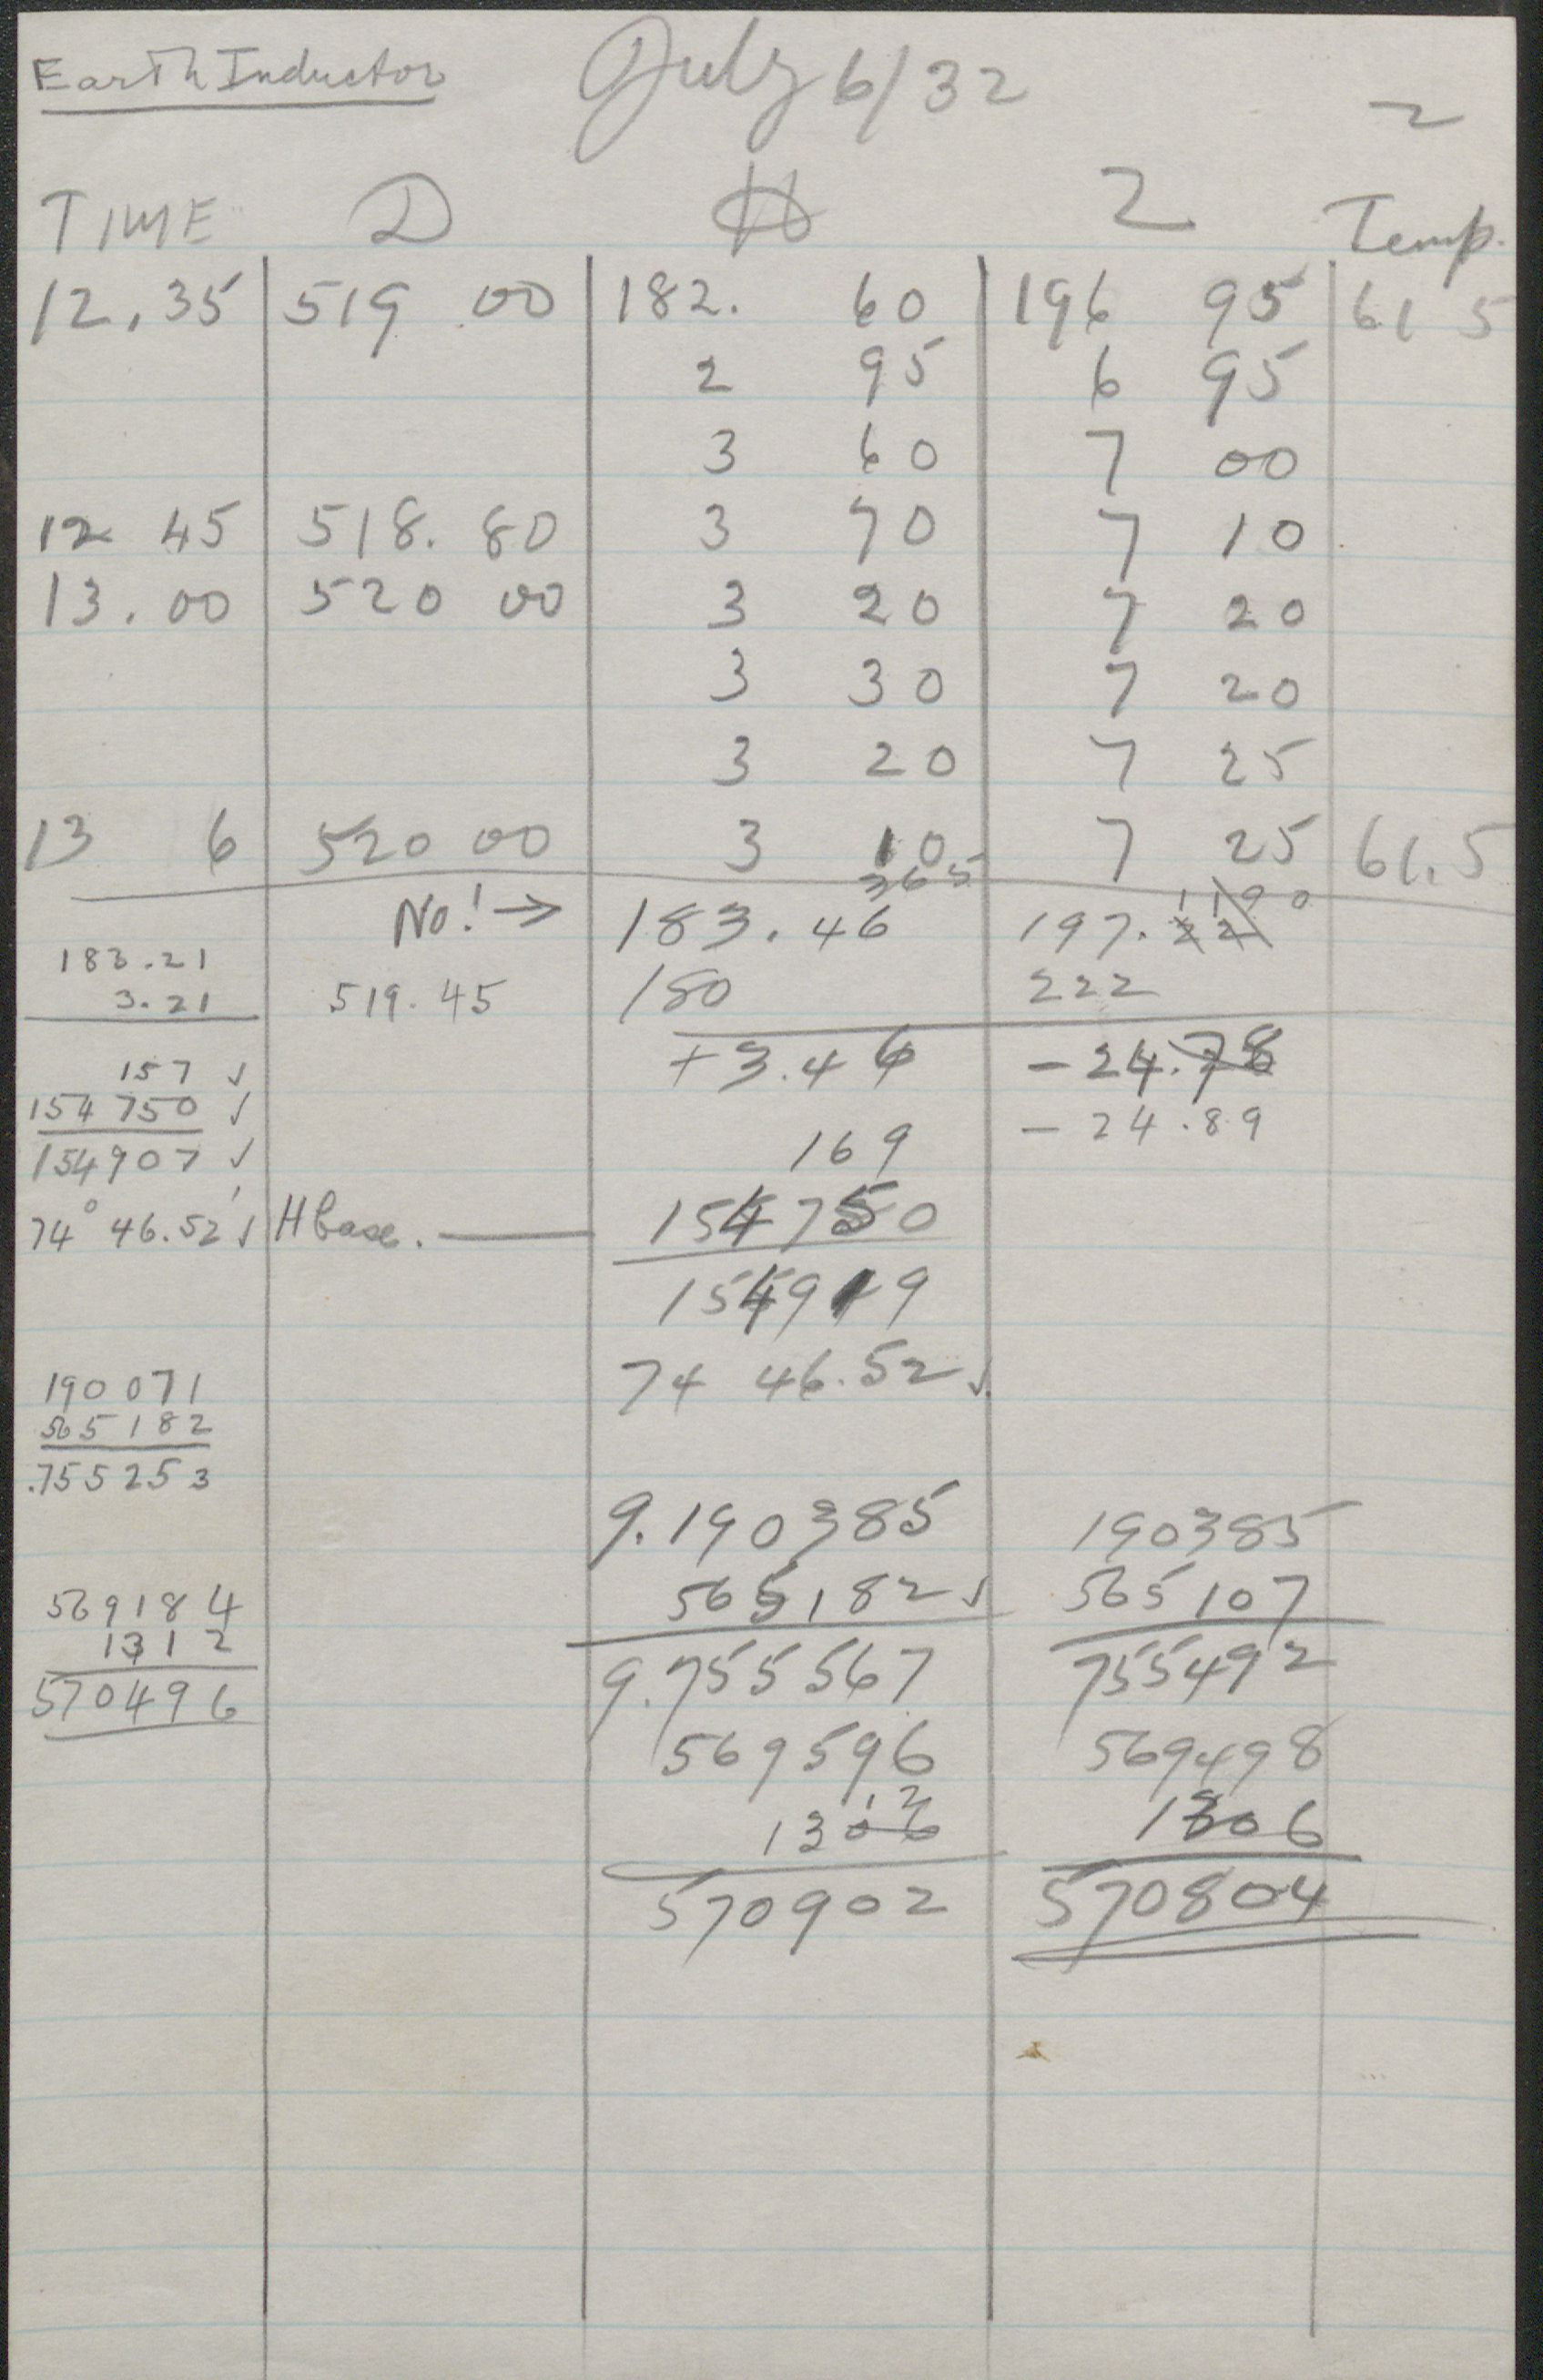 Earth Inductor July 6/32
2
TIME D H Z Temp.
12.35 519 00 182. 60 196 95 61 5
2 95 6 95
3 60 7 00
12 45 518. 80 3 70 7 10
13.00 520 00 3 20 7 20
3 30 7 20
3 20 7 25
13 6 520 00 3 10 7 25 61.5
365 11 90
No! → 183.46 197.22
183.21
3.21 519.45 180 222
+3.46 -24.78
157 ✓
154 750 ✓ -24.89
154907 ✓ 169
74° 46.52' ✓ H base. — 154750
154919
74 46.52 ✓
190 071
565 182
.755253
9.190385 190385
565182 ✓ 565107
569184
1312
9.755567 755492
570496
569596 569498
12
1306 1306
570902 570804